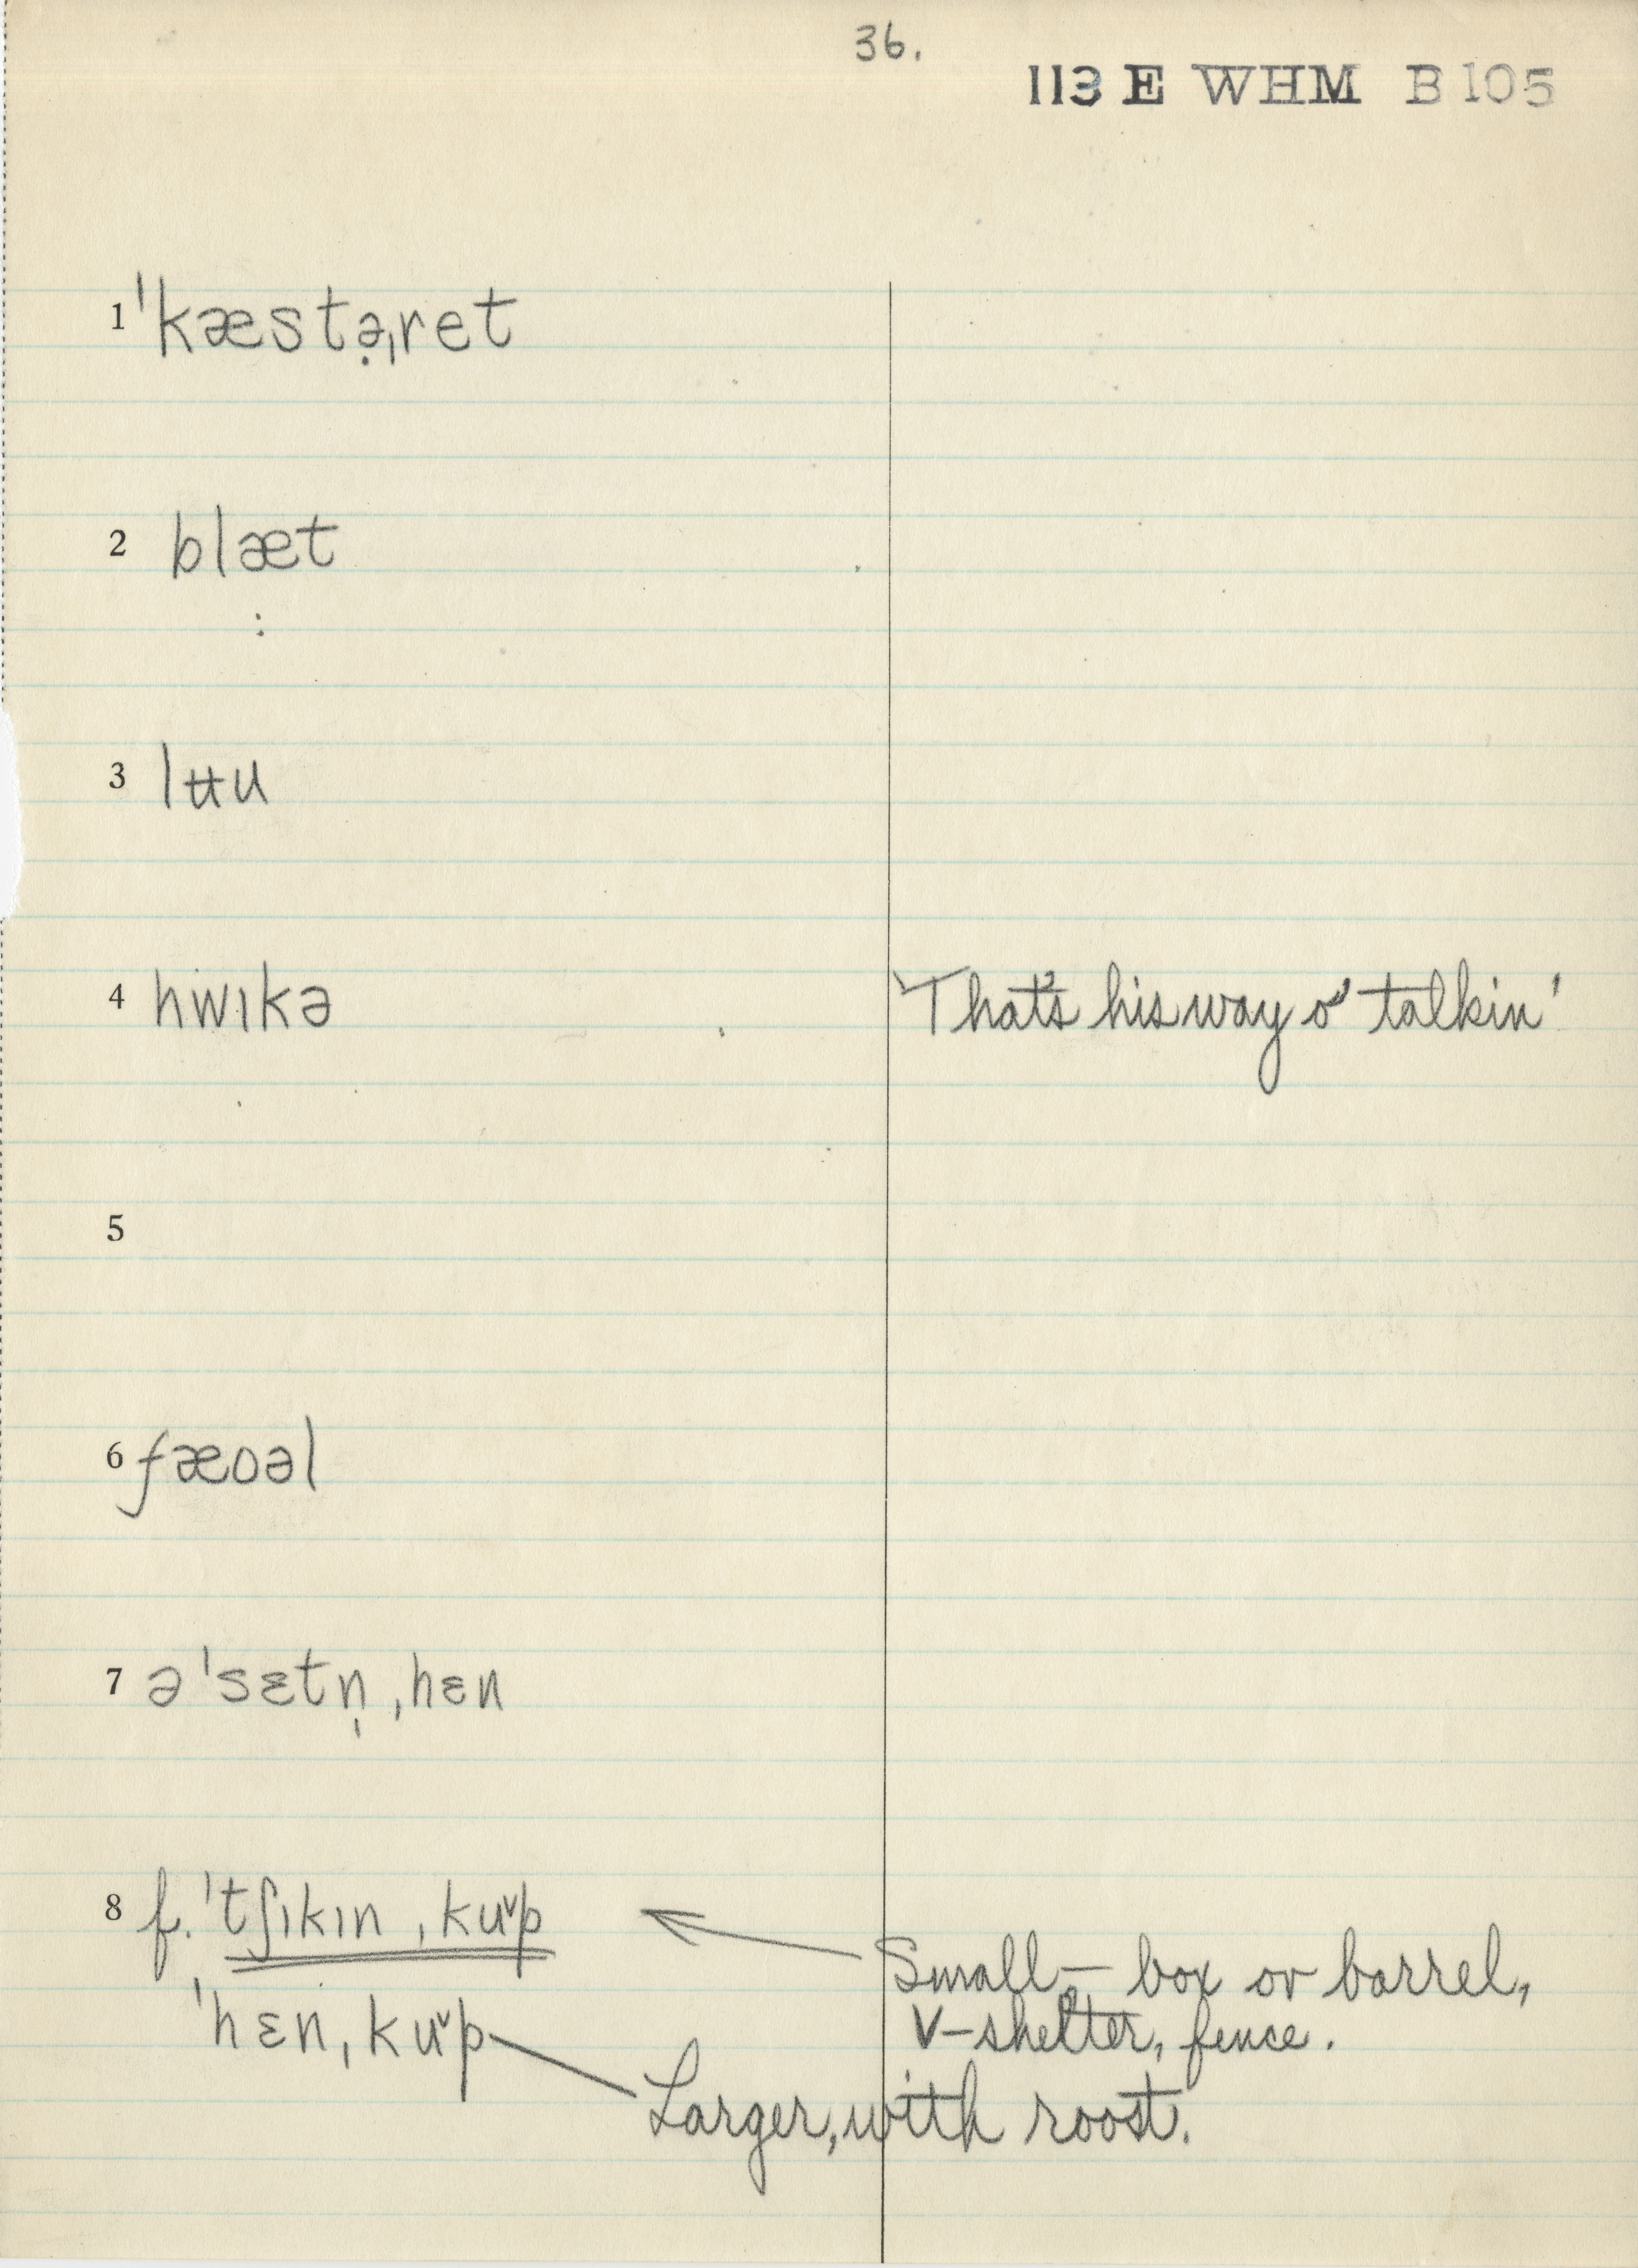 36.
113 E WHM B105
1 ˈkæstə̣ˌret
2 blæt
:
3 lʉu
4 hwɪkə That's his way o' talkin'
5
6 fæoəl
7 əˈsɛtn̩ ˌhɛn
8 f. ˈtʃɪkɪn ˌkuˇp
Small – box or barrel,
V–shelter, fence.
ˈhɛnˌkuˇp
Larger, with roost.